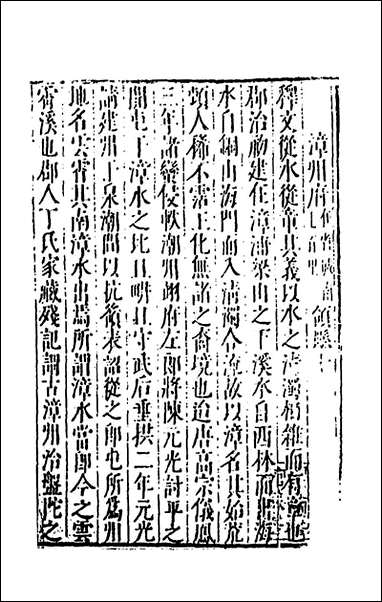 漳州府 領縣
釋文從水從章其義以水之清濁相雜而有章也
郡治初建在漳浦梁山之下溪水自西林而出海
水自銅山海門而入清濁合流故以漳名其始荒
頑人稀不霑王化無諸之裔境也迨唐高宗儀鳳
三年諸蠻侵軼潮州翊府左郎將陳元光討平之
開屯于漳水之北且畊且守武后垂拱二年元光
請建州于泉潮間以抗嶺表詔從之即屯所為州
地名雲霄其南漳水出焉所謂漳水當即今之雲
霄溪也郡人丁氏家藏殘記謂古漳州治盤陀之